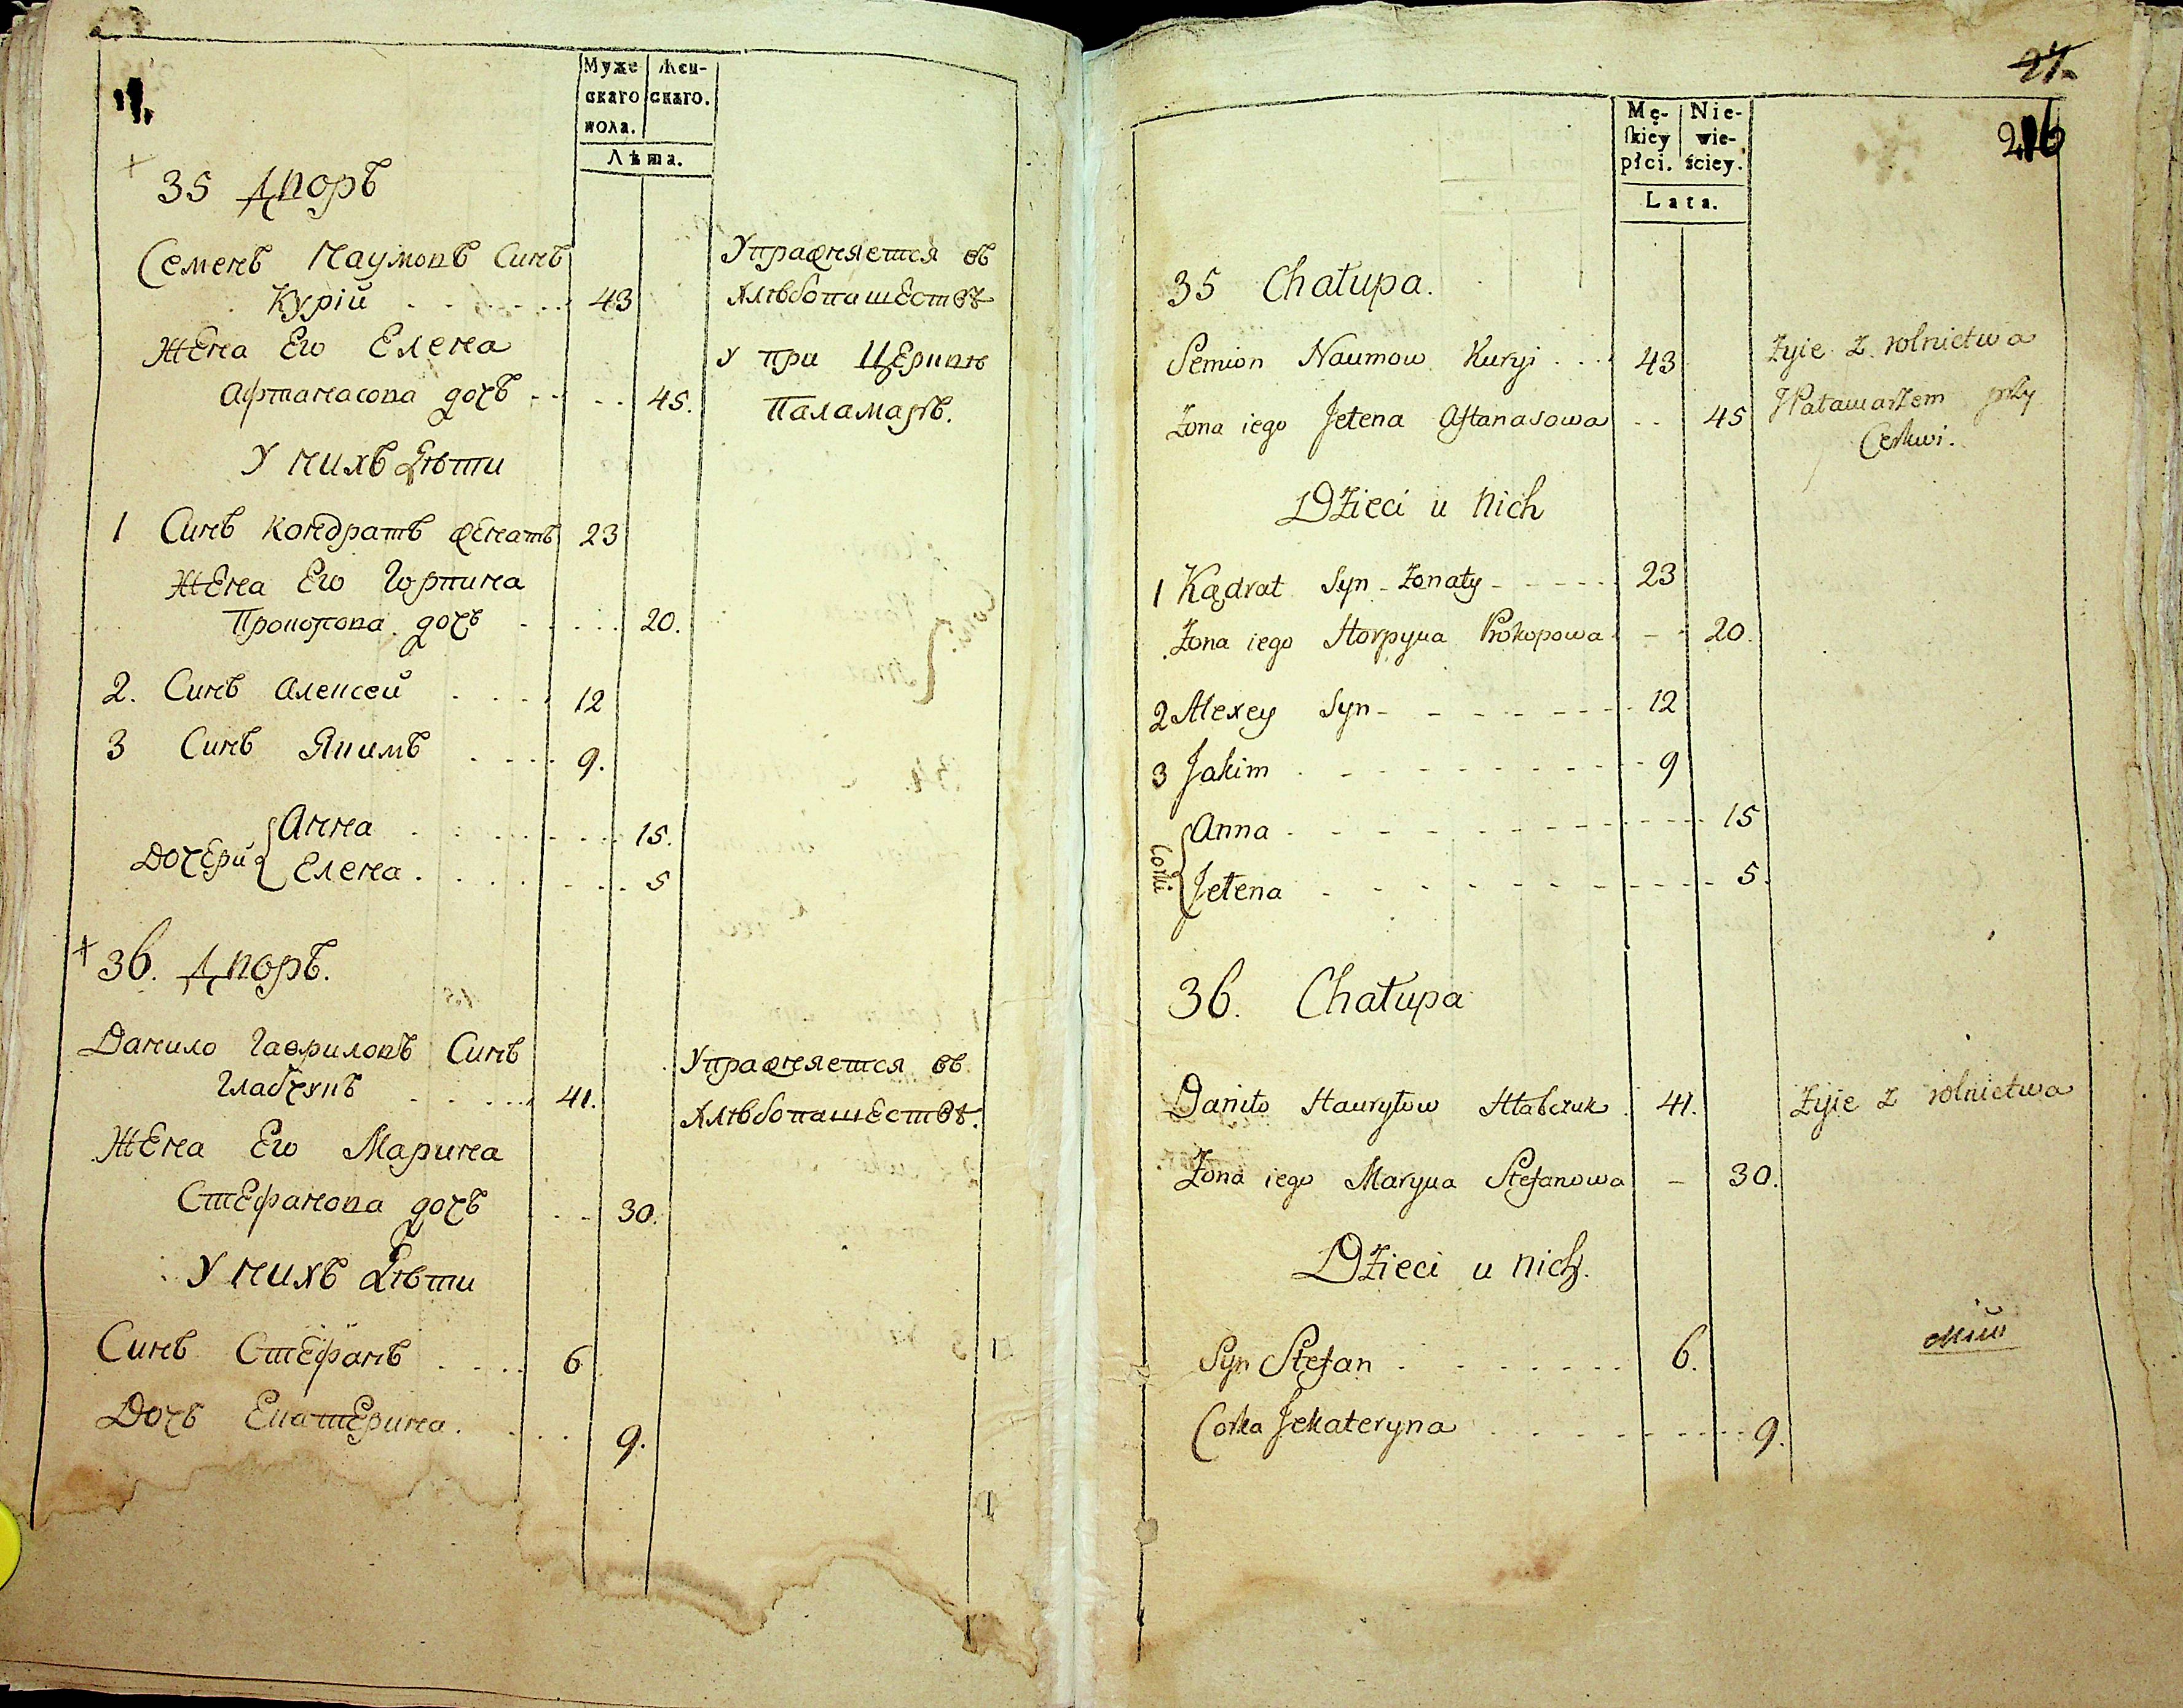 Муже Жен-
скаго скаго.
пола.
Лѣта.
35 Дворъ
Семенъ Наумовъ Синъ
Курій 43
Упражняется въ
Хлѣбопашествѣ
Жена Его Елена
Афтанасова дочъ 45.
У при Церквѣ
Паламаръ.
У нихъ Дѣти
1 Синъ Кондратъ женатъ 23
Жена Его Горпина
Прокопова дочъ 20.
2. Синъ Алексей 12
3 Синъ Якимъ 9.
Дочери
Анна 15.
Елена 5
36. Дворъ.
Данило Гавриловъ Синъ
Глабчукъ 41.
Упражняется въ
Хлѣбопашествѣ.
Жена Его Марина
Стефанова дочъ 30.
У нихъ Дѣти
Синъ Стефанъ 6
Дочъ Екатерина. 9.
27.
216
Mę- Nie-
skiey wie-
płci. ściey.
Lata.
35 Chałupa.
Semion Naumow Kuryi 43 Żyie z rolnictwa
Żona iego Jełena Aftanasowa 45 J Pałamarzem przy
Cerkwi.
Dzieci u nich
1 Kądrat Syn Żonaty 23
Żona iego Horpyna Prokopowa 20.
2 Alexey Syn 12
3 Jakim 9
Corki
Anna 15
Jełena 5.
36. Chałupa
Daniło Hauryłow Hłabczuk 41. Żyie z rolnictwa
Żona iego Maryna Stefanowa 30.
Dzieci u nich.
Syn Stefan 6.
Corka Jekateryna 9.